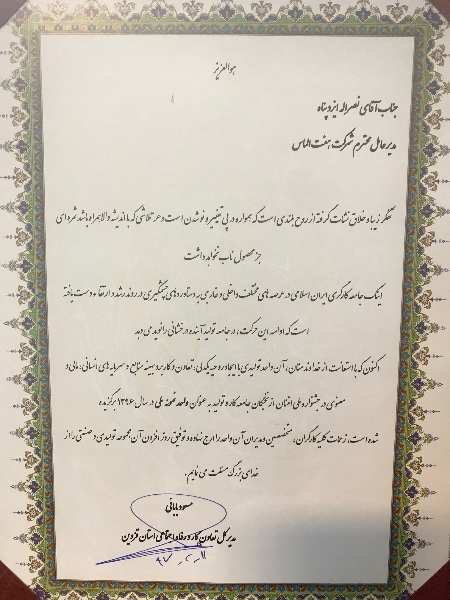 هوالعزیز
جناب آقای نصراله ایزدپناه
مدیرعامل محترم شرکت هفت الماس
تفکر زیبا و خلاق نشات گرفته از روح بلندی است که همواره در پی تغییر و نو شدن است و هر تلاشی که با اندیشه والا همراه باشد ثمره ای
جز محصول ناب نخواهد داشت
اینک جامعه کارگری ایران اسلامی در عرصه های مختلف داخلی و خارجی به دستاوردهای چشمگیری در روند رشد و ارتقاء دست یافته
است که ادامه این حرکت، در جامعه تولید آینده درخشانی را نوید می دهد
اکنون که با استعانت از خداوند منان، آن واحد تولیدی با ایجاد روحیه یکدلی، تعاون و کاربرد بهینه منابع و سرمایه های انسانی، مالی و
معنوی در جشنواره ملی امتنان از نخبگان جامعه کار و تولید به عنوان واحد نمونه ملی در سال ۱۳۹۶ برگزیده
شده است، زحمات کلیه کارگران، متخصصین و مدیران آن واحد را ارج نهاده و توفیق روز افزون آن مجموعه تولیدی و صنعتی را از
خدای بزرگ مسئلت می نمایم.
مسعود بابائی
مدیرکل تعاون کار و رفاه اجتماعی استان قزوین